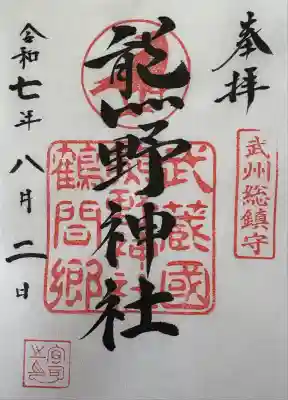 奉拝
武州総鎮守
熊野神社
武蔵國
鶴間郷
令和七年八月二日
宮司之印